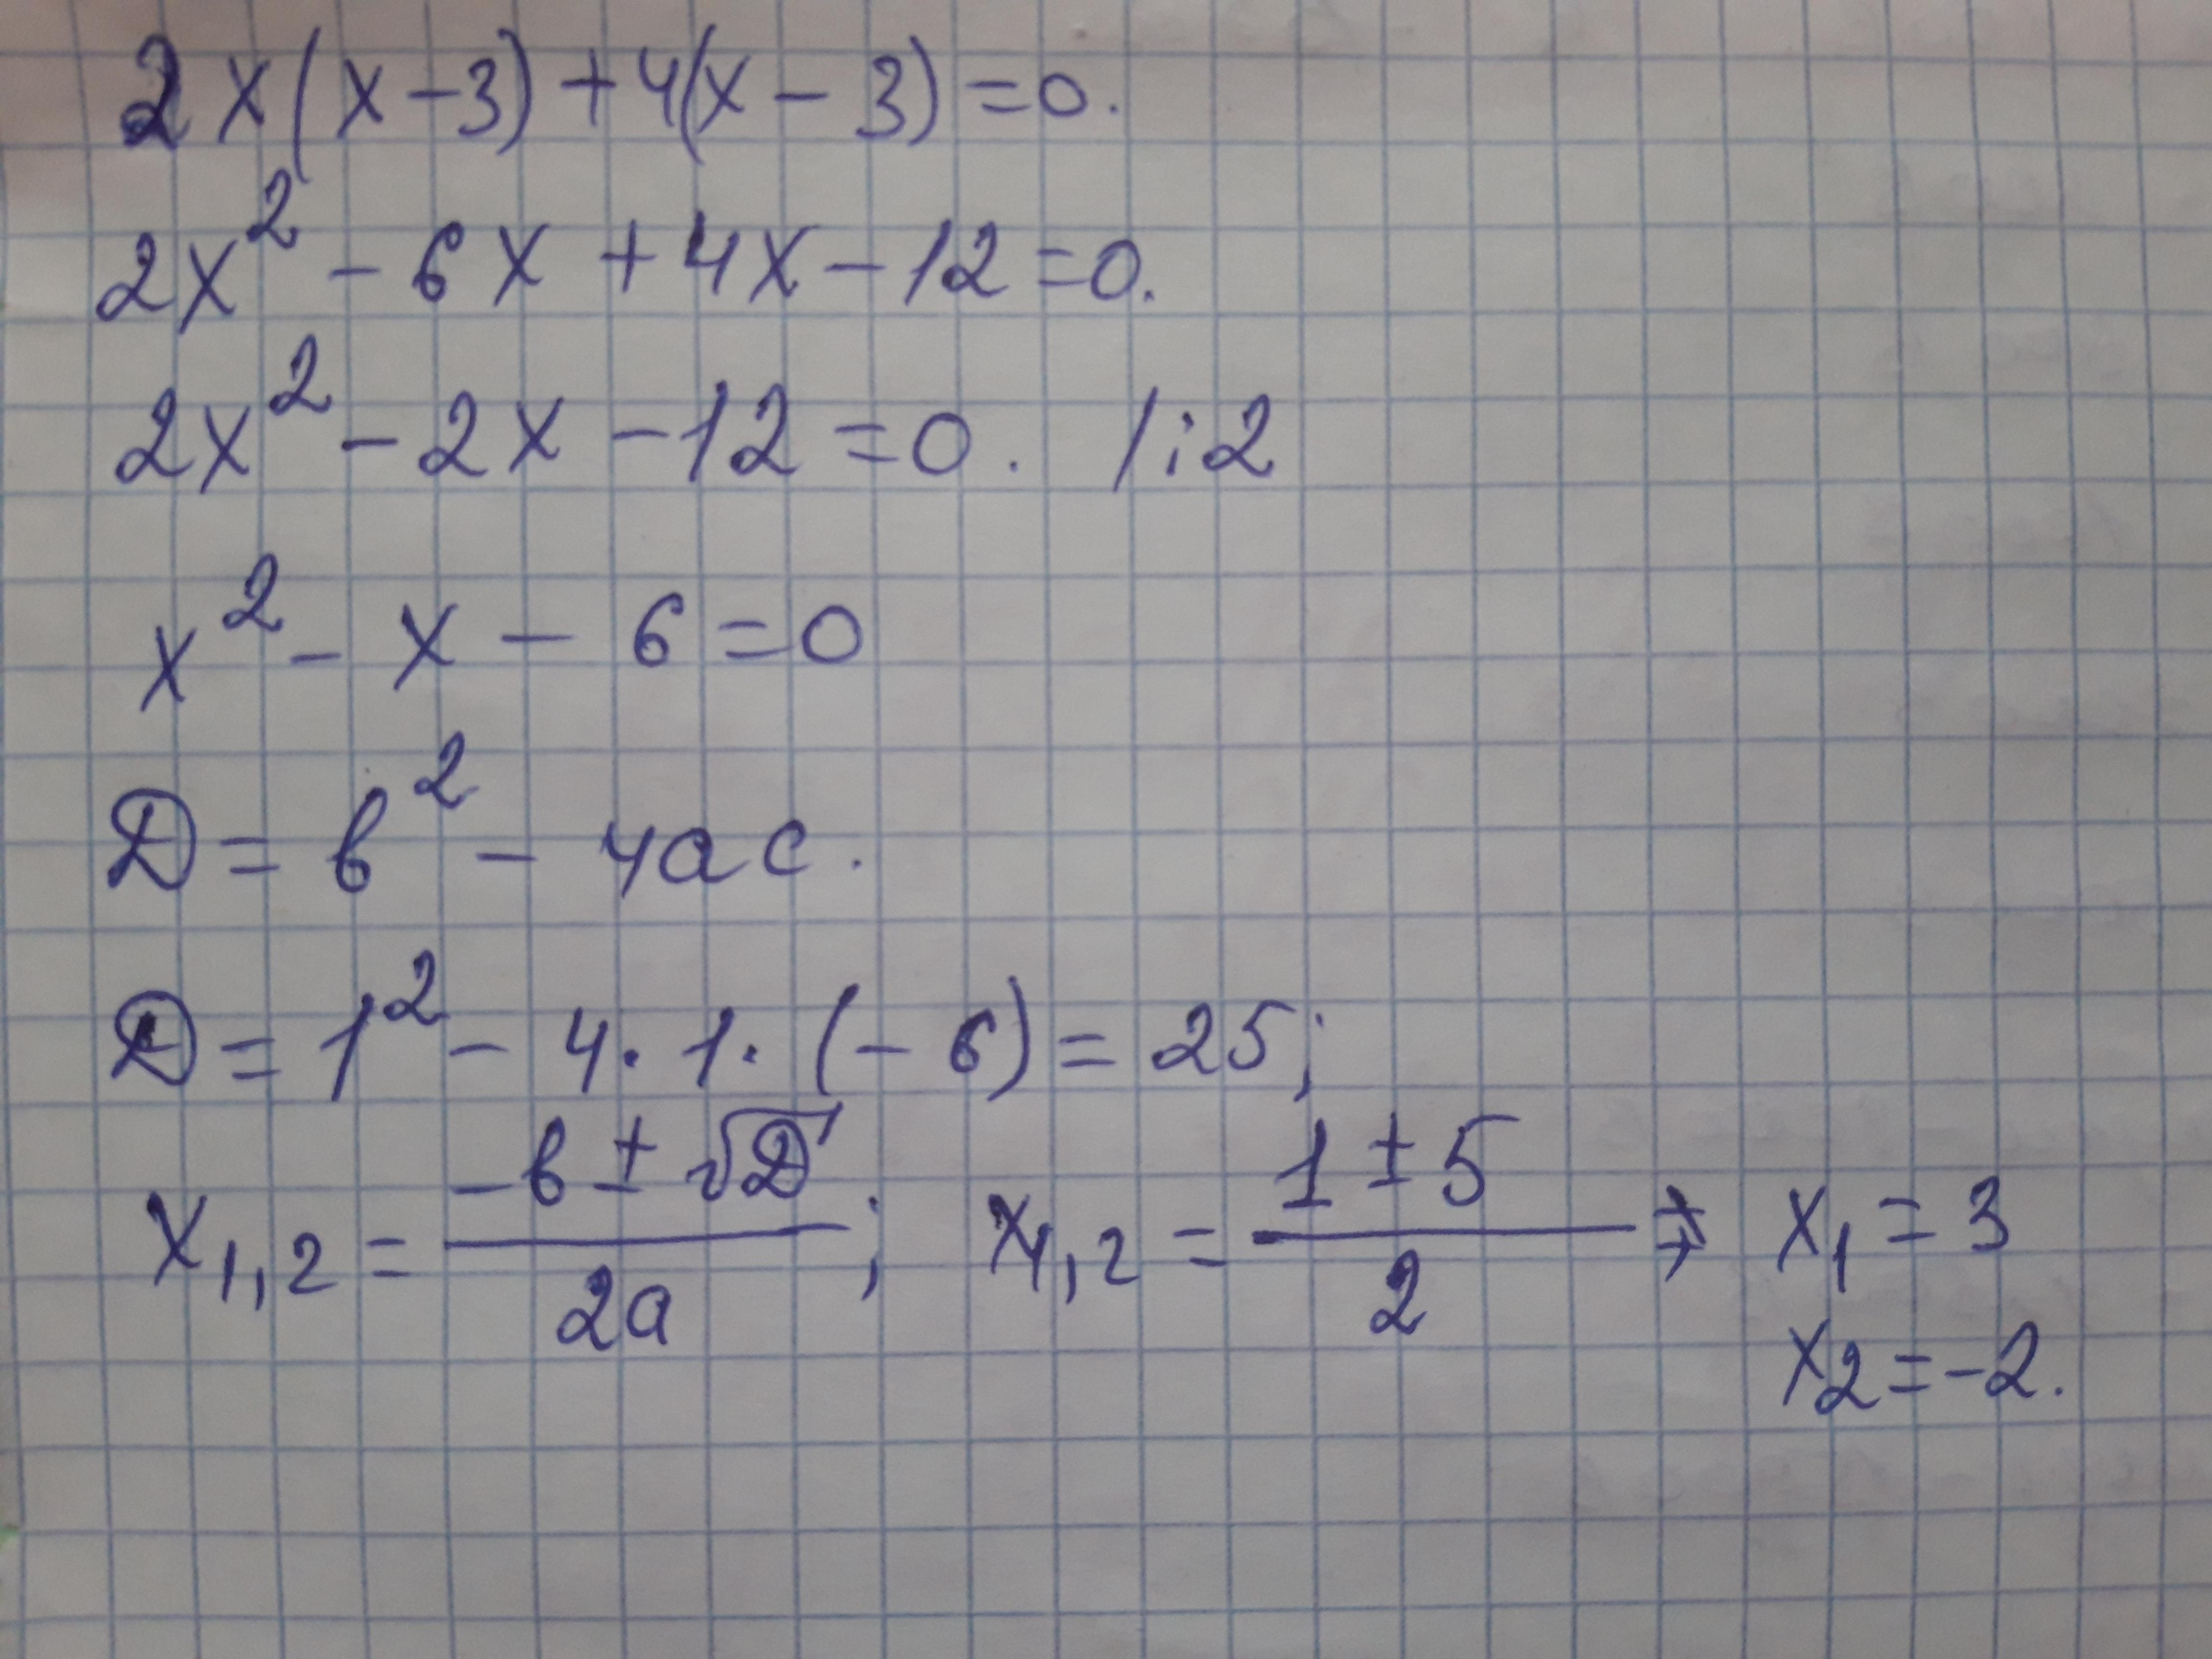 2x(x-3)+4(x-3)=0.
2x²-6x+4x-12=0.
2x²-2x-12=0. /:2
x²-x-6=0
D=b²-4ac.
D=1²-4·1·(-6)=25;
x₁,₂=(-b±√D)/2a; x₁,₂=(1±5)/2 ⇒ x₁=3
x₂=-2.